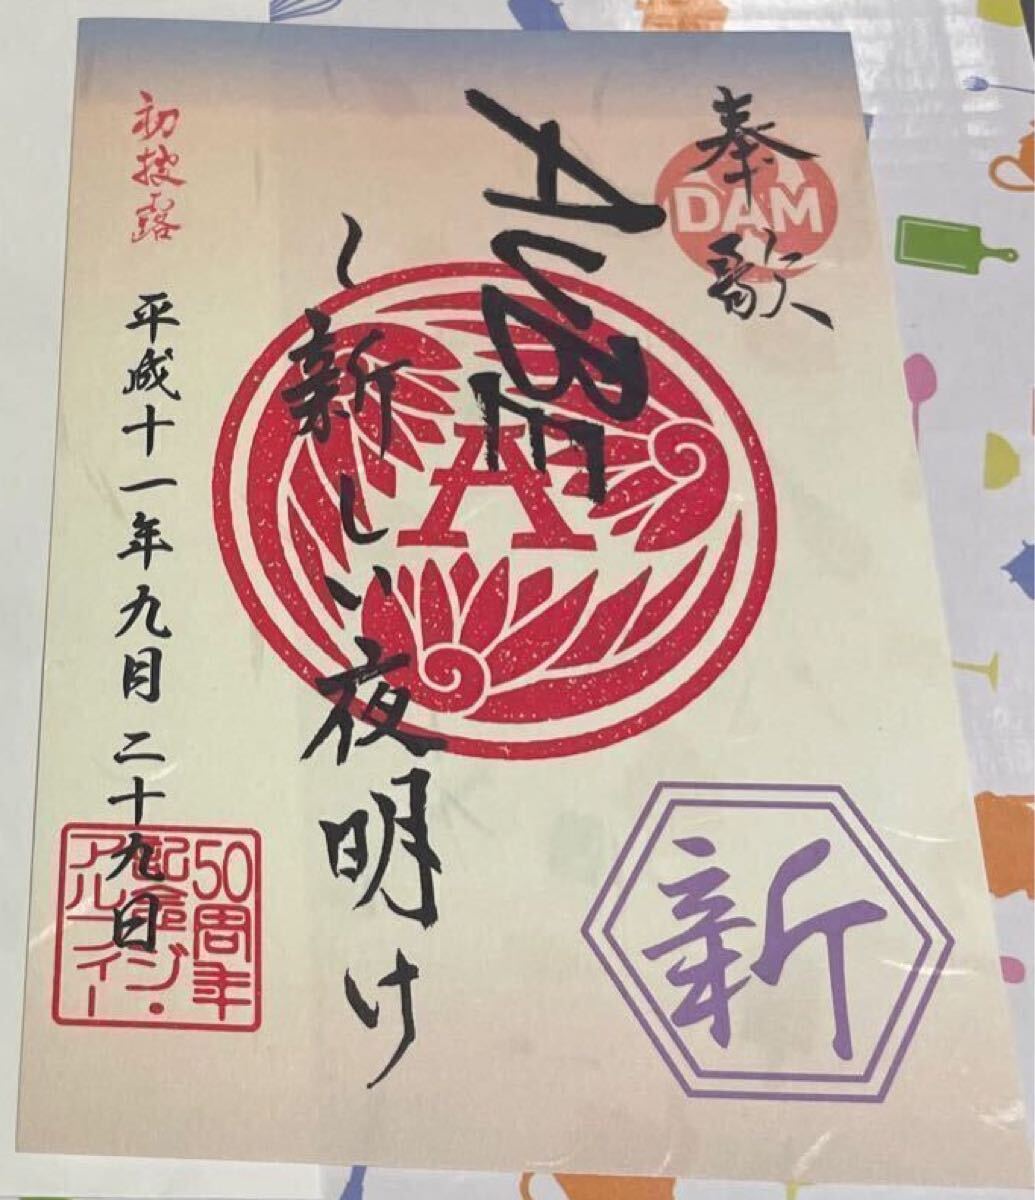 奉歌
DAM
AUBE
〜新しい夜明け
A
初披露
平成十一年九月二十九日
50周年
記念ジ・
アルフィー
新